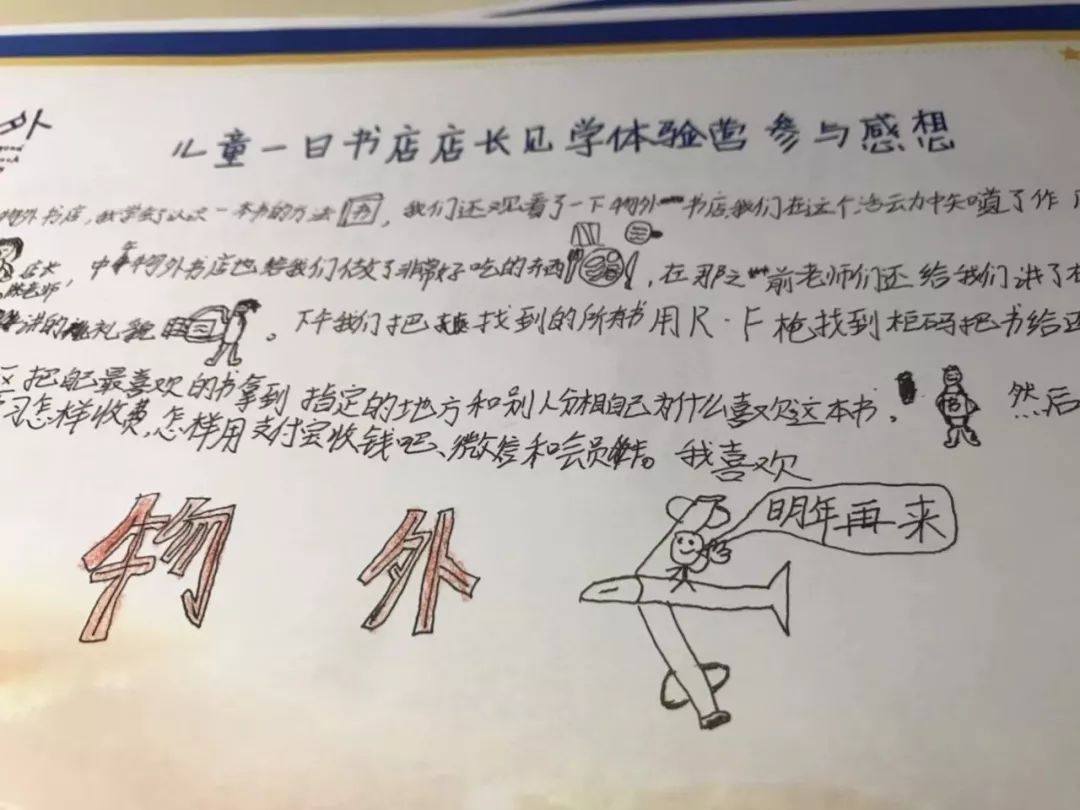 儿童一日书店店长见学体验营参与感想
物外书店,我学会了认识一本书的方法 书,我们还观看了一下物外书店,我们在这个活动中知道了作
店长 中午物外书店也给我们做了非常好吃的东西,在那之前老师们还给我们讲了
老师 讲的礼貌。下午我们把找到的所有书用R·F枪找到柜码把书给还
区把自己最喜欢的书拿到指定的地方和别人分相自己为什么喜欢这本书。 书 然后
习怎样收费,怎样用支付宝收钱吧、微信和会员卡。我喜欢
物外
明年再来